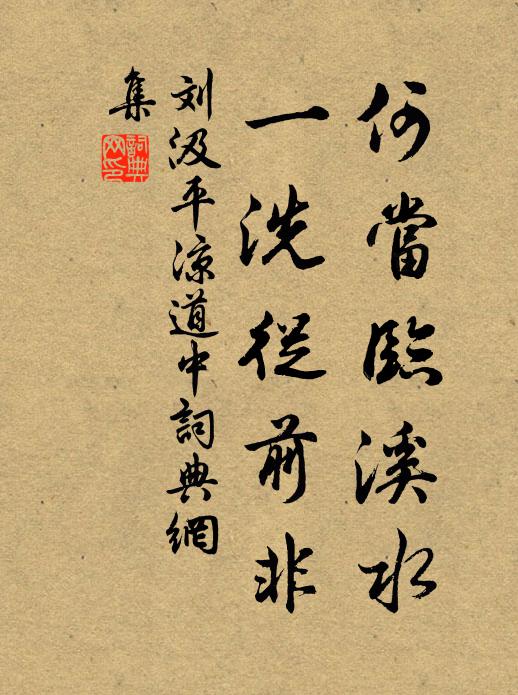 何當臨溪水
一洗從前非
刘汲平涼道中詞典網
集
詞典网印